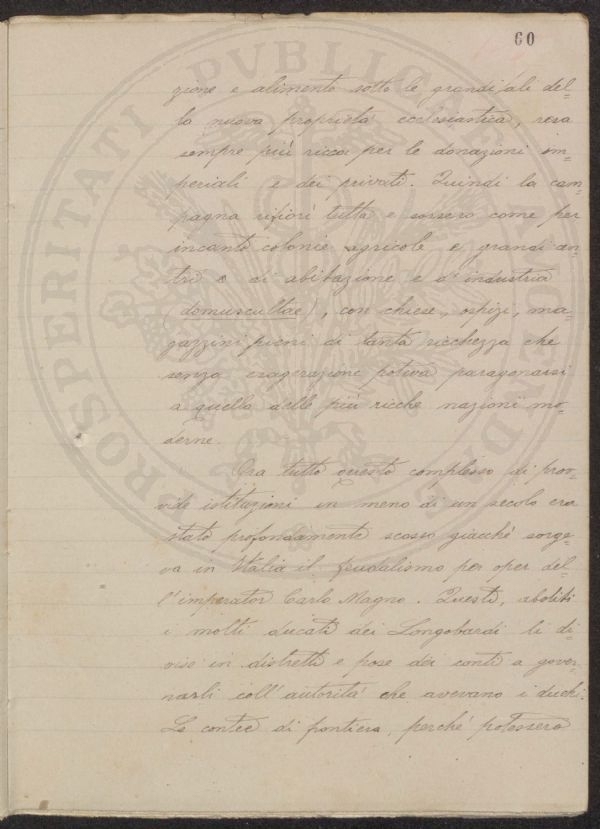 60
zione e alimento sotto le grandi ali del=
la nuova proprietà ecclesiastica, resa
sempre più ricca per le donazioni im=
periali e dei privati. Quindi la cam=
pagna rifiorì tutta e sorsero come per
incanto colonie agricole e grandi cen=
tri di abitazione e d'industria
(domuscultae), con chiese, ospizi, ma=
gazzini pieni di tanta ricchezza che
senza esagerazione poteva paragonarsi
a quella delle più ricche nazioni mo=
derne.
Ora tutto questo complesso di prov=
vide istituzioni in meno di un secolo era
stato profondamente scosso giacchè sorge=
va in Italia il feudalismo per oper del=
l'imperator Carlo Magno. Questi, aboliti
i molti ducati dei Longobardi li di=
vise in distretti e pose dei conti a gover=
narli coll'autorità che avevano i duchi.
Le contee di frontiera, perchè potessero
PROSPERITATI PVBLICAE AVGENDAE